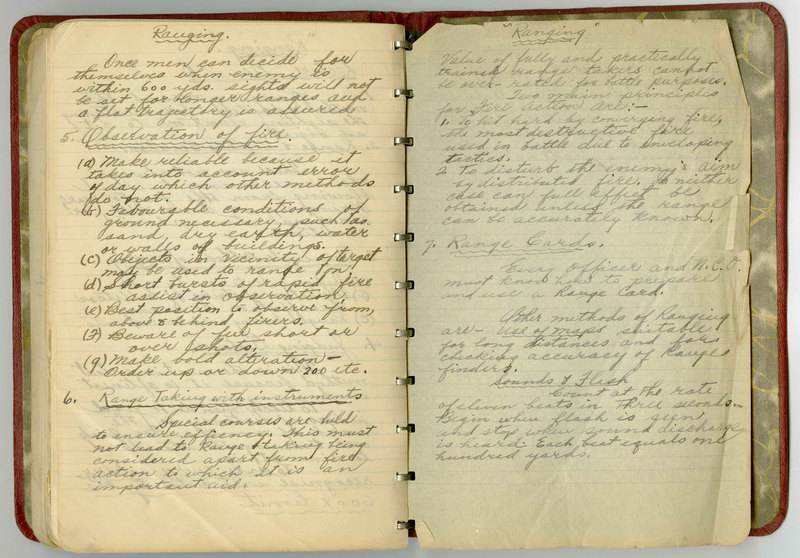 Ranging.
Once men can decide for
themselves when enemy is
within 600 yds. sights will not
be set for longer ranges and
a flat trajectory is assured
5. Observation of fire.
(a) Make reliable because it
takes into account error
of day which other methods
do not.
(b) Favourable conditions of
ground necessary, such as
sand, dry earth, water
or walls of buildings.
(c) Objects in vicinity of target
may be used to range on,
(d) Short bursts of rapid fire
assist in observation
(e) Best position to observe from,
above & behind firers.
(f) Beware of few short or
over shots.
(g) Make bold alteration –
Order up or down 200 etc.
6. Range Taking with instruments
Special courses are held
to ensure efficency. This must
not lead to Range taking being
considered apart from fire
action to which it is an
important aid.
"Ranging"
Value of fully and practically
trained range takers cannot
be over-rated for battle purposes.
Two main principles
for Fire action are:-
1. To hit hard by converging fire,
the most destructive fire
used in battle due to enveloping
tactics.
2. To disturb the enemy's aim
by distributed fire. In neither
case can full effect be
obtained unless the range
can be accurately known.
7. Range Cards.
Every Officer and N.C.O.
must know how to prepare
and use a Range Card.
Other methods of Ranging
are – Use of maps suitable
for long distances and for
checking accuracy of Range
finders.
Sounds & Flash
Count at the rate
of eleven beats in three seconds –
Begin when flash is seen
and stop when sound discharge
is heard. Each beat equals one
hundred yards.